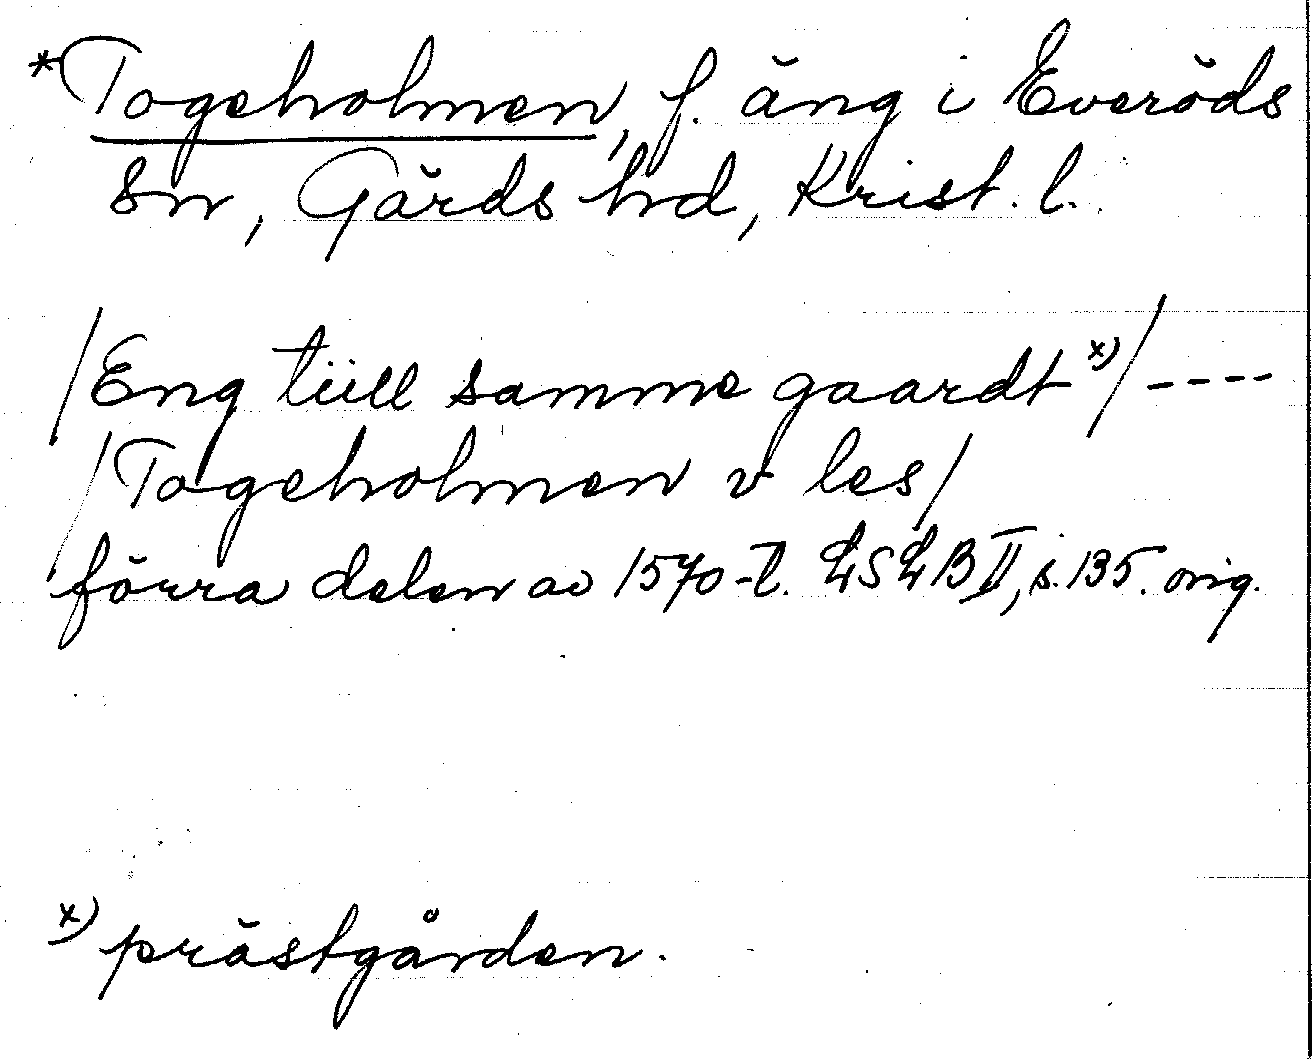 *Togeholmen, f. äng i Everöds
sn, Gärds hd, Krist. l.
/Eng tiill samme gaardt x)/ ----
/Togeholmen v les/
förra delen av 1570-t. LSLB II, s. 135. orig.
x) prästgården.